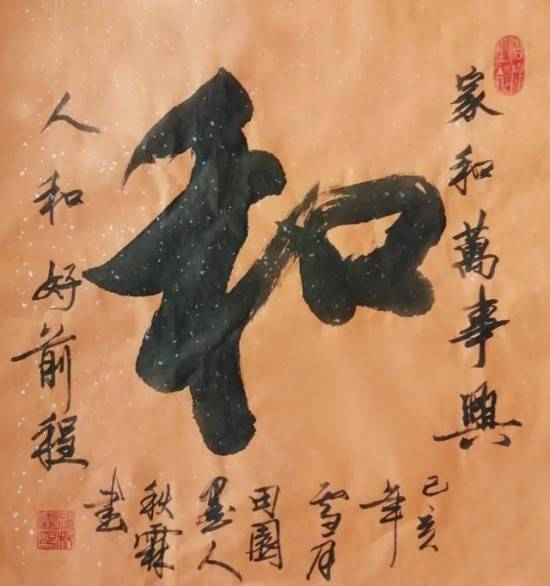 和
家和萬事興
人和好前程
己亥
年
雪月
田園
墨人
秋霖
書